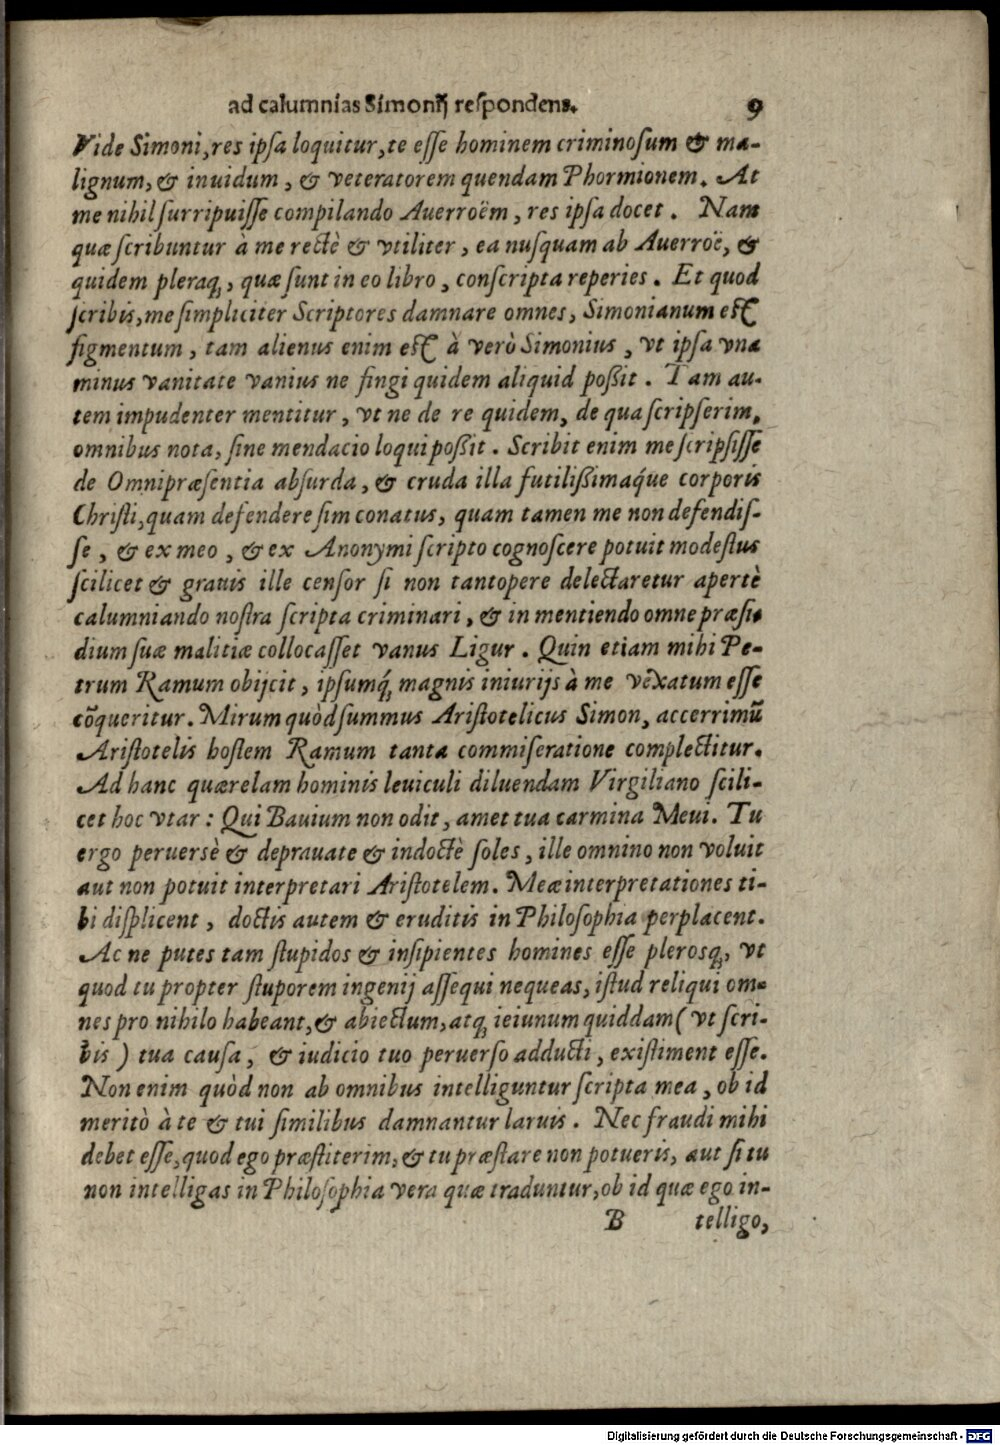 ad calumnias Simonij respondens. 9
Vide Simoni, res ipsa loquitur, te esse hominem criminosum & ma-
lignum, & inuidum, & veteratorem quendam Phormionem. At
me nihil surripuisse compilando Auerroëm, res ipsa docet. Nam
quæ scribuntur à me rectè & vtiliter, ea nusquam ab Auerroë, &
quidem pleraq́;, quæ sunt in eo libro, conscripta reperies. Et quod
scribis, me simpliciter Scriptores damnare omnes, Simonianum est
figmentum, tam alienus enim est à verò Simonius, vt ipsa vna
minus vanitate vanius ne fingi quidem aliquid possit. Tam au-
tem impudenter mentitur, vt ne de re quidem, de qua scripserim,
omnibus nota, sine mendacio loqui possit. Scribit enim me scripsisse
de Omnipræsentia absurda, & cruda illa futilissimaq́ue corporis
Christi, quam defendere sim conatus, quam tamen me non defendis-
se, & ex meo, & ex Anonymi scripto cognoscere potuit modestus
scilicet & grauis ille censor si non tantopere delectaretur apertè
calumniando nostra scripta criminari, & in mentiendo omne præsi-
dium suæ malitiæ collocasset vanus Ligur. Quin etiam mihi Pe-
trum Ramum obijcit, ipsumq́; magnis iniurijs à me vexatum esse
cōqueritur. Mirum quòd summus Aristotelicus Simon, accerrimū
Aristotelis hostem Ramum tanta commiseratione complectitur.
Ad hanc quærelam hominis leuiculi diluendam Virgiliano scili-
cet hoc vtar: Qui Bauium non odit, amet tua carmina Meui. Tu
ergo peruersè & deprauate & indoctè soles, ille omnino non voluit
aut non potuit interpretari Aristotelem. Meæ interpretationes ti-
bi displicent, doctis autem & eruditis in Philosophia perplacent.
Ac ne putes tam stupidos & insipientes homines esse plerosq́;, vt
quod tu propter stuporem ingenij assequi nequeas, istud reliqui om-
nes pro nihilo habeant, & abiectum, atq́; ieiunum quiddam (vt scri-
bis) tua causa, & iudicio tuo peruerso adducti, existiment esse.
Non enim quòd non ab omnibus intelliguntur scripta mea, ob id
meritò à te & tui similibus damnantur laruis. Nec fraudi mihi
debet esse, quod ego præstiterim, & tu præstare non potueris, aut si tu
non intelligas in Philosophia vera quæ traduntur, ob id quæ ego in-
B telligo,
Digitalisierung gefördert durch die Deutsche Forschungsgemeinschaft - DFG